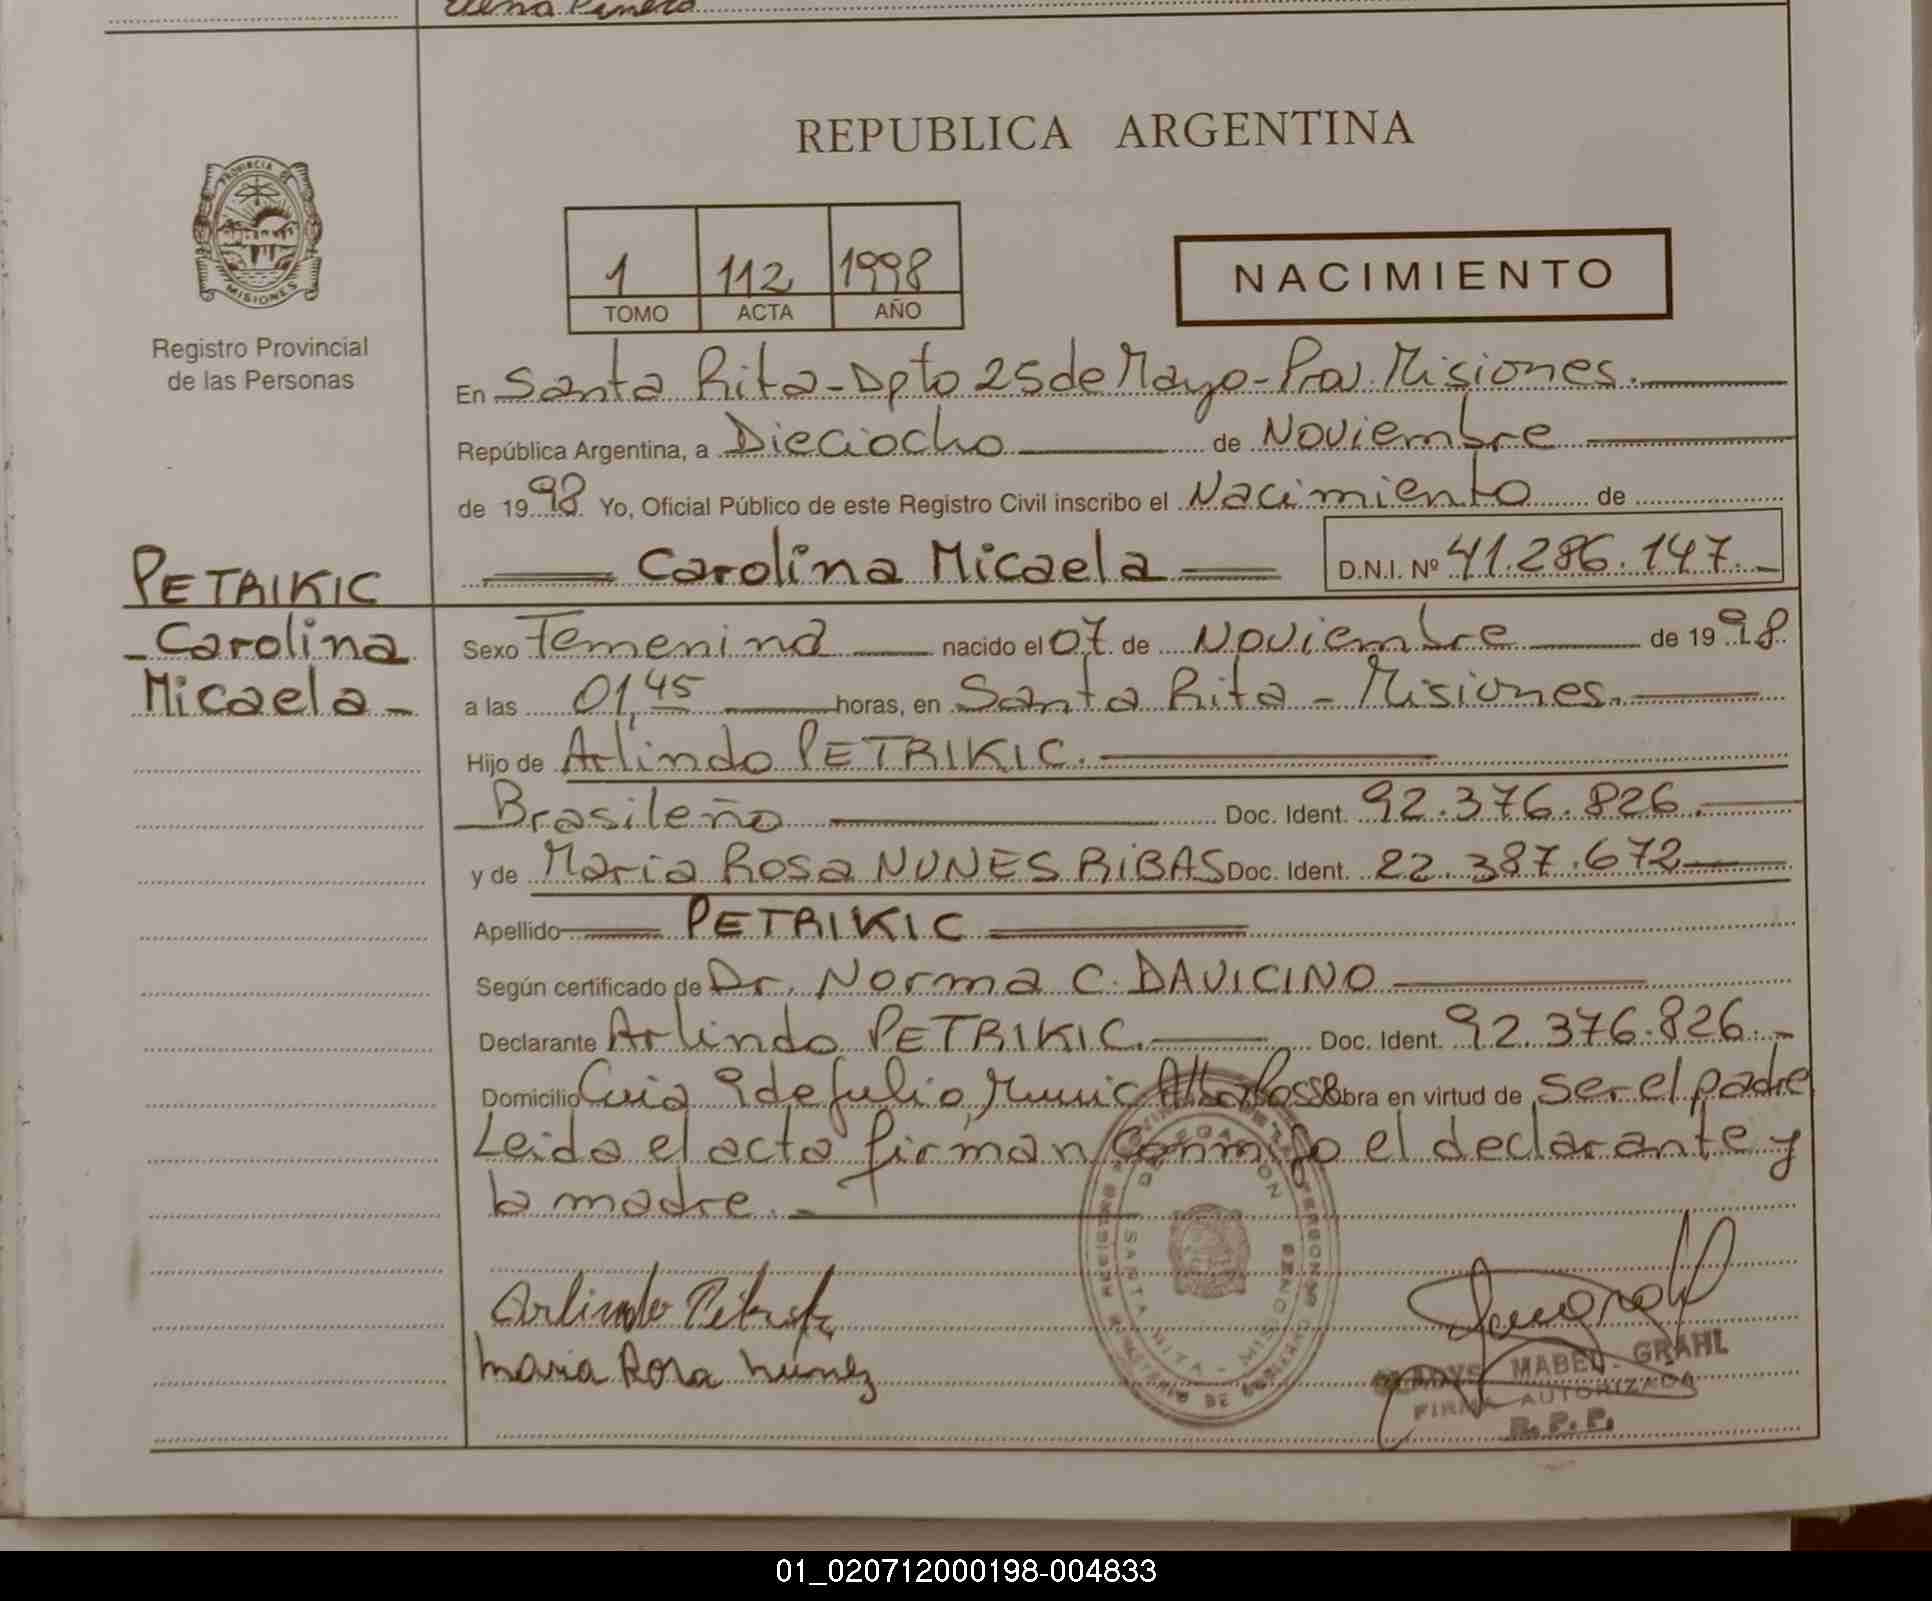 Elena Piñero
REPUBLICA ARGENTINA
PROVINCIA DE
MISIONES
Registro Provincial
de las Personas
1 112 1998
TOMO ACTA AÑO
NACIMIENTO
En Santa Rita-Dpto 25 de Mayo-Prov. Misiones.
República Argentina, a Dieciocho de Noviembre
de 1998 Yo, Oficial Público de este Registro Civil inscribo el Nacimiento de
Carolina Micaela D.N.I. Nº 41.286.147.
PETRIKIC
Carolina
Micaela
Sexo Femenina nacido el 07 de Noviembre de 1998
a las 01,45 horas, en Santa Rita - Misiones.
Hijo de Arlindo PETRIKIC.
Brasileño Doc. Ident. 92.376.826.
y de Maria Rosa NUNES RIBAS Doc. Ident. 22.387.672
Apellido PETRIKIC
Según certificado de Dr. Norma C. DAVICINO
Declarante Arlindo PETRIKIC. Doc. Ident. 92.376.826.
Domicilio 9 de Julio, Munic Alba Posse Obra en virtud de ser el padre
Leida el acta firman conmigo el declarante y
la madre.
DELEGACION
SANTA RITA - MISIONES
Arlindo
Maria Rosa Núnez
MABEL GRAHL
FIRMA AUTORIZADA
R.P.P.
01_020712000198-004833